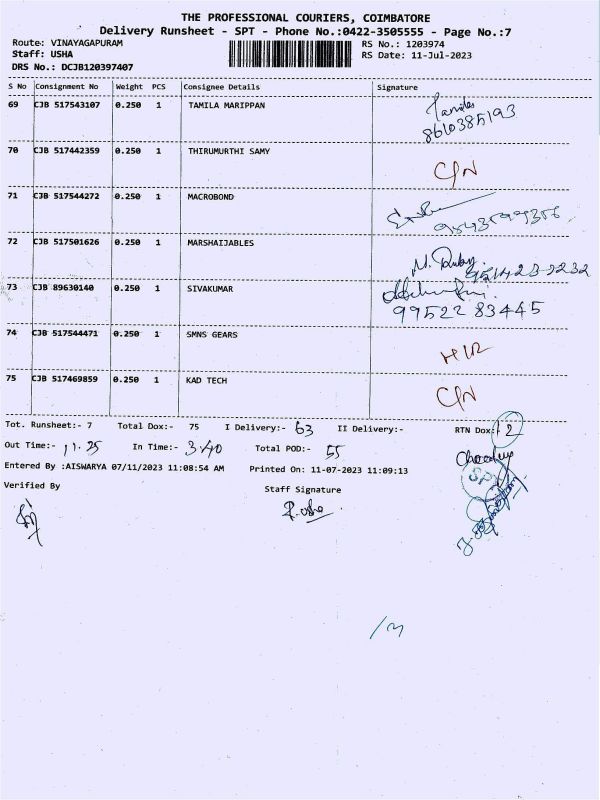 THE PROFESSIONAL COURIERS, COIMBATORE
Delivery Runsheet - SPT - Phone No.:0422-3505555 - Page No.:7
Route: VINAYAGAPURAM RS No.: 1203974
Staff: USHA RS Date: 11-Jul-2023
DRS No.: DCJB120397407
S No Consignment No Weight PCS Consignee Details Signature
69 CJB 517543107 0.250 1 TAMILA MARIPPAN
8610385193
70 CJB 517442359 0.250 1 THIRUMURTHI SAMY C/N
71 CJB 517544272 0.250 1 MACROBOND
72 CJB 517501626 0.250 1 MARSHAIJABLES
73 CJB 89630140 0.250 1 SIVAKUMAR
99522 83445
74 CJB 517544471 0.250 1 SMNS GEARS
75 CJB 517469859 0.250 1 KAD TECH C/N
Tot. Runsheet:- 7 Total Dox:- 75 I Delivery:- 63 II Delivery:- RTN Dox:- 12
Out Time:- 11.25 In Time:- 3.40 Total POD:- 55
Entered By :AISWARYA 07/11/2023 11:08:54 AM Printed On: 11-07-2023 11:09:13
Verified By Staff Signature
R. Usha